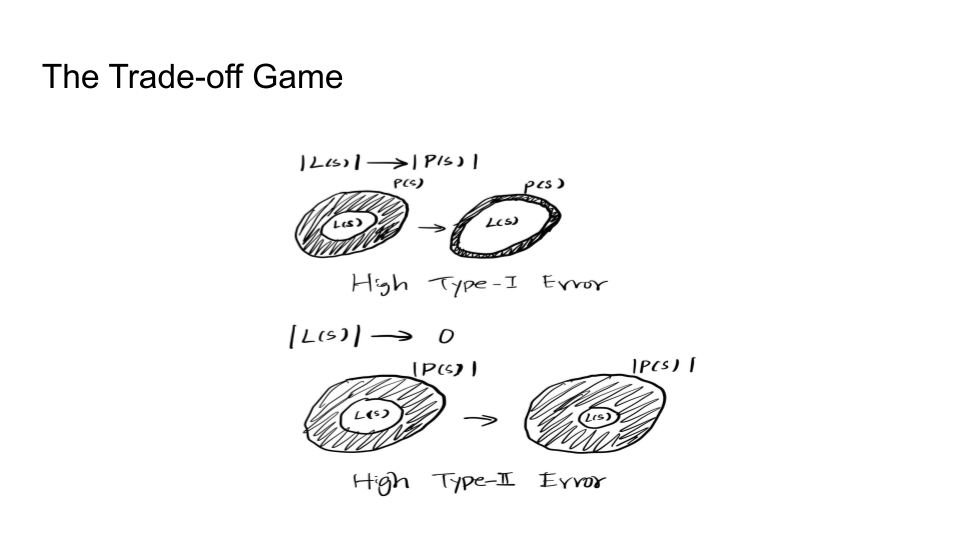 The Trade-off Game
|L(s)| → |P(s)|
P(s)
P(s)
L(s) → L(s)
High Type-I Error
|L(s)| → 0
|P(s)|
|P(s)|
L(s) → L(s)
High Type-II Error